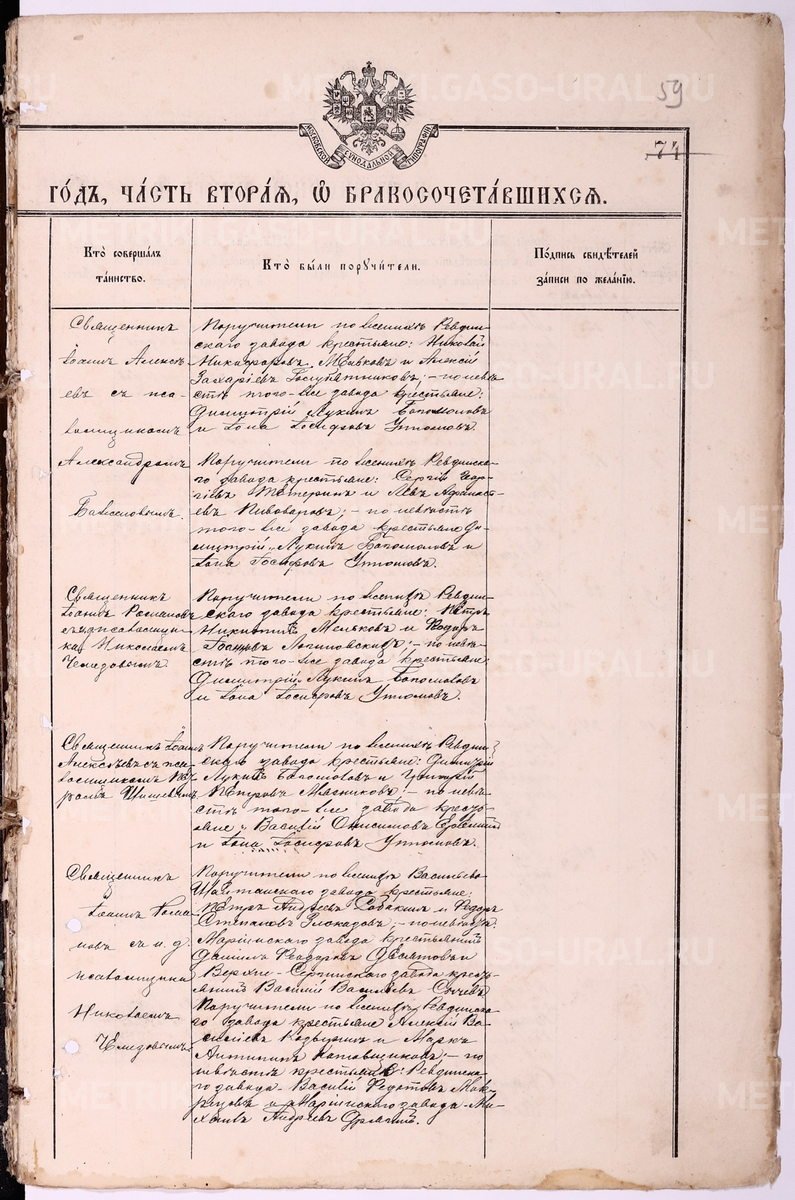 METRIKI.GASO-URAL.RU
59
74
МОСКОВСКОЙ СѴНОДАЛЬНОЙ ТИПОГРАФІИ
ГОДЪ, ЧАСТЬ ВТОРАЯ, Ѡ БРАКОСОЧЕТАВШИХСЯ.
Кто совершалъ
таинство.
Кто были поручители.
Подпись свидѣтелей
записи по желанію.
Священникъ
Іоаннъ Алексѣ-
евъ съ пса-
ломщикомъ
Александромъ
Поручители по женихѣ Ревдин-
скаго завода крестьяне: Николай
Никифоровъ и Алексѣй
Захаріевъ — по невѣ-
стѣ того-же завода крестьяне:
Димитрій Лукинъ Богомоловъ
и Іона Іосифовъ Утюмовъ.
Поручители по женихѣ Ревдинска-
го завода крестьяне: Сергій Геор-
гіевъ Тетеринъ и Левъ Афанась-
евъ Пивоваровъ; — по невѣстѣ
того-же завода крестьяне Ди-
митрій Лукинъ Богомоловъ и
Іона Іосифовъ Утюмовъ.
Священникъ
Іоаннъ Романовъ
съ псаломщи-
комъ Николаемъ
Поручители по женихѣ Ревдин-
скаго завода крестьяне: Петръ
Никитинъ и Ѳеодоръ
Іоанновъ — по невѣ-
стѣ того-же завода крестьяне:
Димитрій Лукинъ Богомоловъ
и Іона Іосифовъ Утюмовъ.
Священникъ Іоаннъ
Алексѣевъ съ пса-
ломщикомъ Пет-
ромъ
Поручители по женихѣ Ревдин-
скаго завода крестьяне: Димитрій
Лукинъ Богомоловъ и Григорій
Петровъ Мясниковъ; — по невѣ-
стѣ того-же завода кресть-
яне: Василій Онисимовъ
и Іона Іосифовъ Утюмовъ.
Священникъ
Іоаннъ Рома-
новъ съ и. д.
псаломщика
Николаемъ
Поручители по женихѣ Васильево-
Шайтанскаго завода крестьяне:
Петръ Андреевъ и Ѳедоръ
Степановъ Злоказовъ; — по невѣстѣ:
Маріинскаго завода крестьянинъ
Даніилъ Ѳеодоровъ и
Верхне-Сергинскаго завода кресть-
янинъ Василій Васильевъ Сычевъ
Поручители по женихѣ Ревдинска-
го завода крестьяне Алексій Ва-
сильевъ и Маркъ
Антипинъ — по
невѣстѣ крестьяне: Ревдинска-
го завода Василій
и Маріинскаго завода Ми-
хаилъ Андреевъ